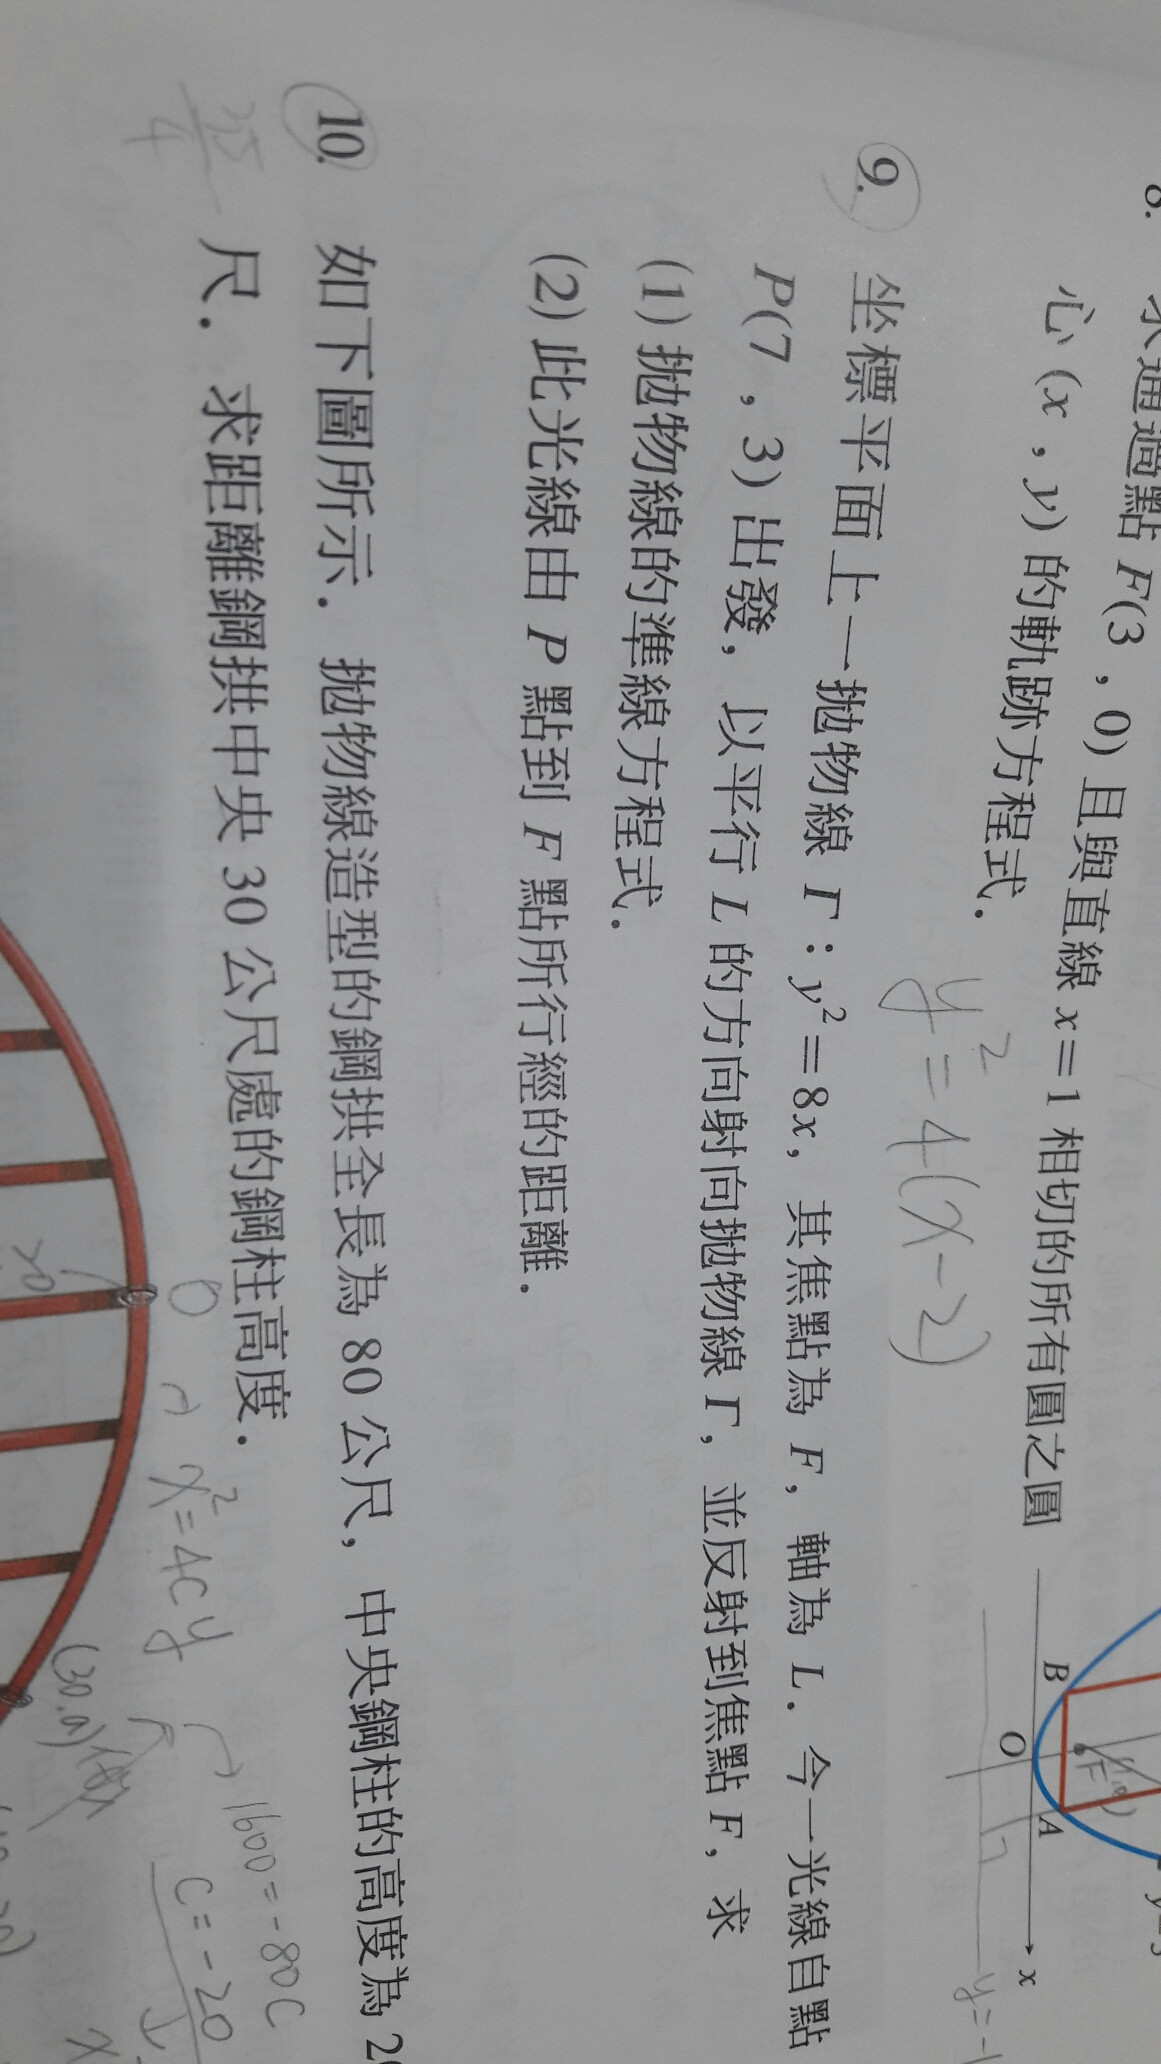 8. 求通過點 F(3 , 0) 且與直線 x=1 相切的所有圓之圓
心 (x , y) 的軌跡方程式.
y²=4(x-2)
B
O
A
F
x
9. 坐標平面上一拋物線 Γ : y²=8x, 其焦點為 F, 軸為 L. 今一光線自點
P(7 , 3) 出發, 以平行 L 的方向射向拋物線 Γ, 並反射到焦點 F, 求
(1) 拋物線的準線方程式.
(2) 此光線由 P 點到 F 點所行經的距離.
10. 如下圖所示. 拋物線造型的鋼拱全長為 80 公尺, 中央鋼柱的高度為 20
尺. 求距離鋼拱中央 30 公尺處的鋼柱高度.
35
4
O
20
x²=4cy
1600=-80c
c=-20
(30,a)